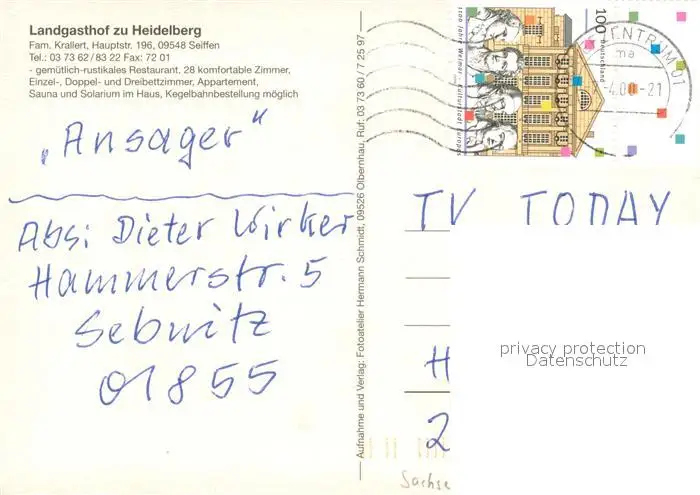 Landgasthof zu Heidelberg
Fam. Krallert, Hauptstr. 196, 09548 Seiffen
Tel.: 03 73 62 / 83 22 Fax: 72 01
- gemütlich-rustikales Restaurant, 28 komfortable Zimmer,
Einzel-, Doppel- und Dreibettzimmer, Appartement,
Sauna und Solarium im Haus, Kegelbahnbestellung möglich
„Ansager“
Abs: Dieter Wirker
Hammerstr. 5
Sebnitz
01855
Aufnahme und Verlag: Fotoatelier Hermann Schmidt, 09526 Olbernhau, Ruf: 03 73 60 / 7 25 97
1100 Jahre Weimar - Kulturstadt Europas
100
Deutschland
ENTRUM 01
-21
TV TODAY
H
2
privacy protection
Datenschutz
Sachse